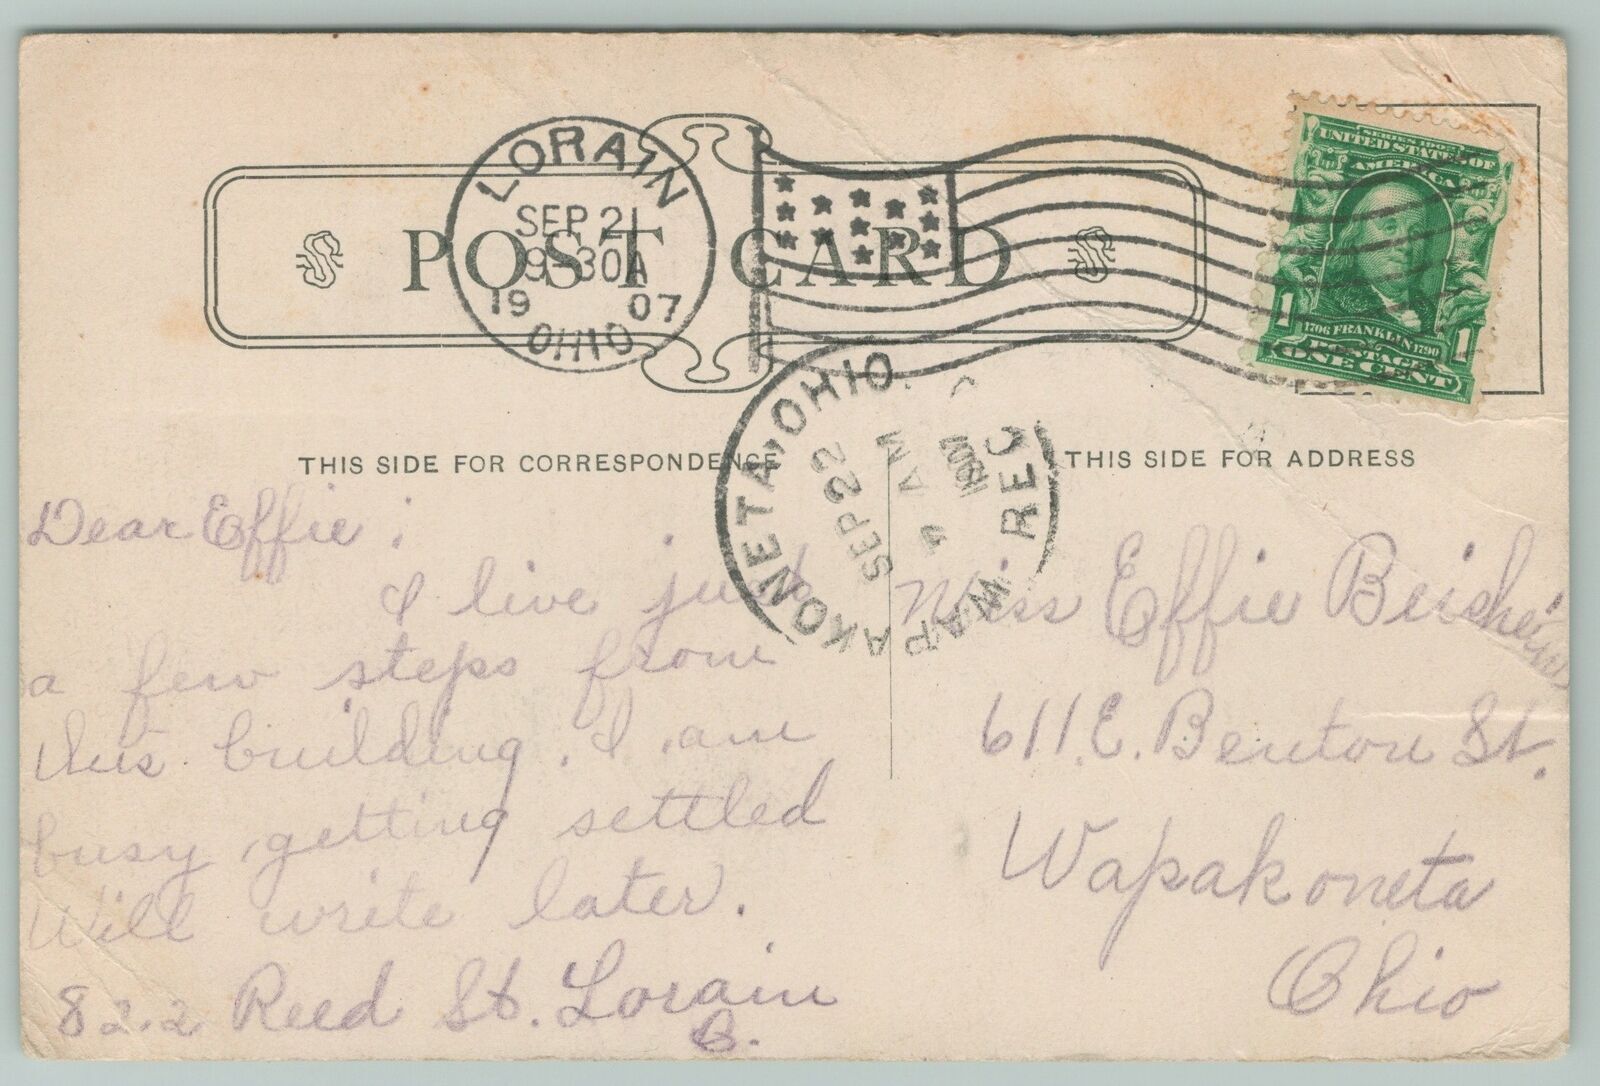 LORAIN
SEP 21
9-30A
1907
OHIO
POST CARD
SERIES 1902
UNITED STATES OF
AMERICA
1 1
1706 FRANKLIN 1790
POSTAGE
ONE CENT
WAPAKONETA, OHIO
SEP 22
4 AM
1907
REC'D
THIS SIDE FOR CORRESPONDENCE
Dear Effie:
I live just
a few steps from
this building. I am
busy getting settled
Will write later.
822 Reed St. Lorain
O.
THIS SIDE FOR ADDRESS
Miss Effie
611 E. Benton St.
Wapakoneta
Ohio